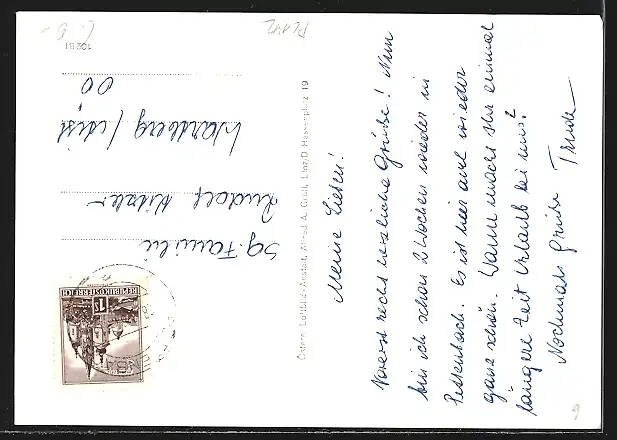 Meine Lieben!
Vorerst recht herzliche Grüße! Nun
bin ich schon 2 Wochen wieder in
Pettenbach. Es ist hier auch wieder
ganz schön. Wann macht Ihr einmal
längere Zeit Urlaub bei uns?
Nochmals Grüße Trude
Österr. Luftbild-Anstalt, Alfred A. Gruß, Linz/D. Hessenplatz 19
REPUBLIK ÖSTERREICH
1S
Sg. Familie
Rudolf
Wartberg / Krist
OÖ
10281